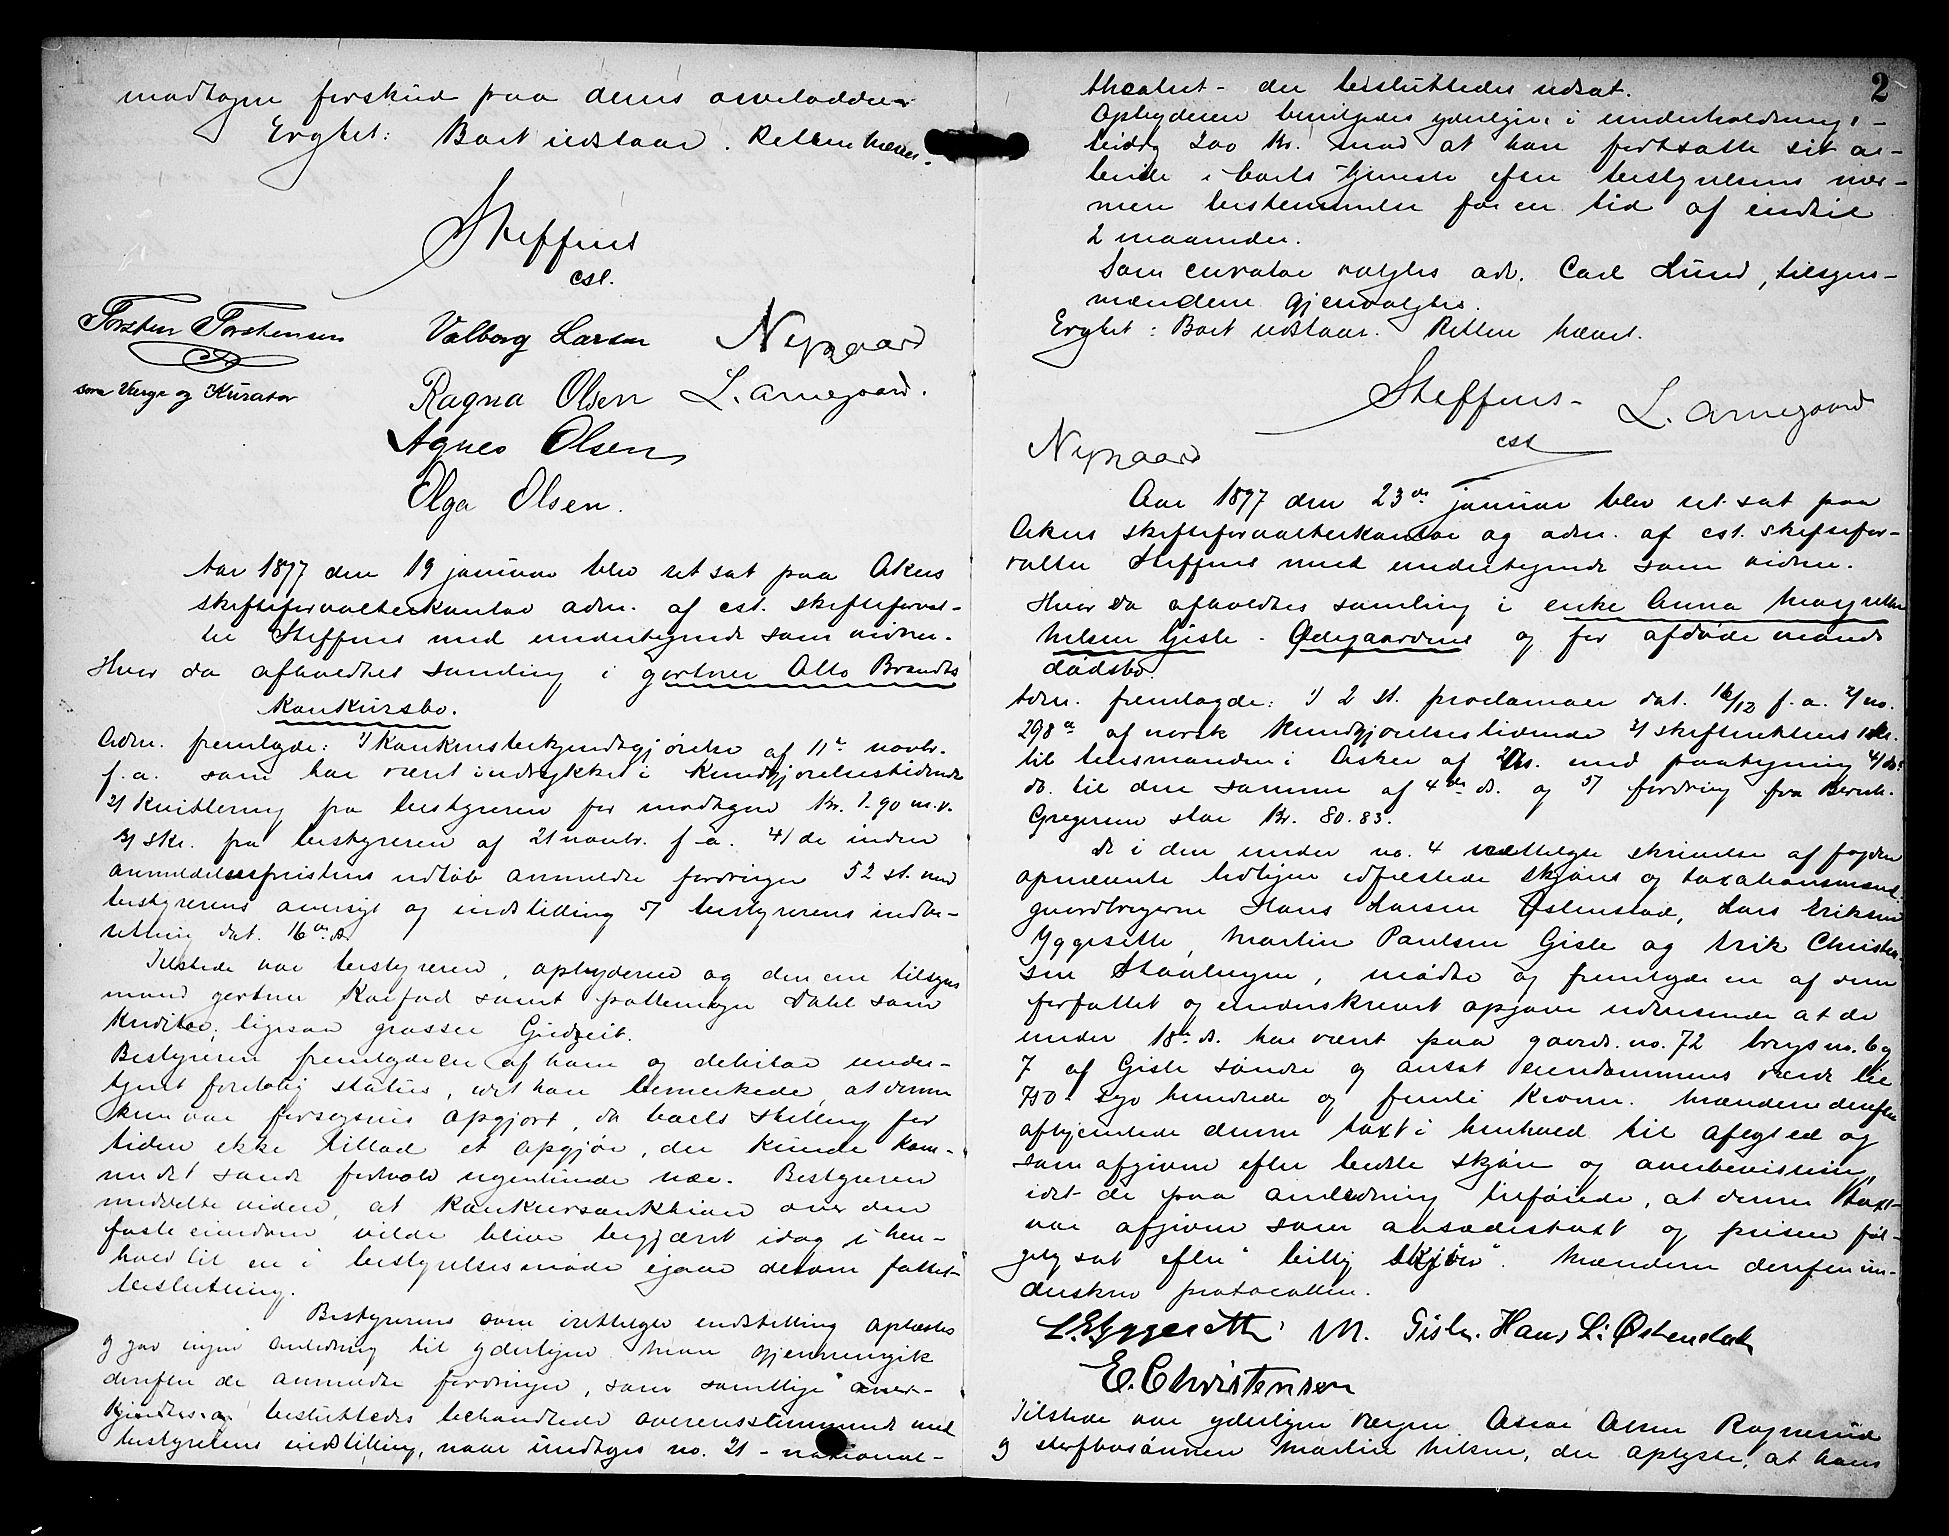 modtagne forskud paa deres arvelodder
Erglet: Boet udstaar. Retten hævet.
Steffens
cst.
Torsten Torstensen
som Verge og Kurator
Valborg Larsen
Nygaard
Ragna Olsen
L. Arnegaard.
Agnes Olsen
Olga Olsen.
Aar 1897 den 19 januar blev ret sat paa Akers
skifteforvalterkontor adm. af cst. skifteforval-
ter Steffens med undertegnede som vidner.
Hvor da afholdtes samling i gartner Otto Brandts
konkursbo.
Adm. fremlagde: 1/ konkursbekjendtgjørelse af 11te novbr.
f. a. som har været indrykket i Kundgjørelsestidende
2/ kvittering fra bestyreren for modtagne Kr. 1.90 m. v.
3/ skr. fra bestyreren af 21 novbr. f. a. 4/ de inden
anmeldelsesfristens udløb anmeldte fordringer 52 st. med
bestyrerens oversigt og indstilling 5/ bestyrerens indbe-
retning dat. 16de ds.
Tilstede var bestyreren, opbyderen og den ene tilsyns
mand gartner Kaifod samt pottemager Dahl som
kreditor, ligesaa grosser Gudzeit.
Bestyreren fremlagde en af ham og debitor under-
tegnet foreløbig status, idet han bemerkede, at denne
kun var forsøgsvis opgjort, da boets stilling for
tiden ikke tillod et opgjør, der kunde kom-
me det sande forhold nogenlunde nær. Bestyreren
meddelte videre, at konkursauktion over den
faste eiendom vilde blive begjæret idag i hen-
hold til en i bestyrelsesmøde igaar derom fattet
beslutning.
Bestyrerens som irettelagt indstilling oplæstes
og gav ingen anledning til yderligere. Man gjennemgik
derefter de anmeldte fordringer, som samtlige aner-
kjendtes og besluttedes behandlede overensstemmende med
bestyrelsens indstilling, naar undtages no. 21 - national-
2
theatret - der besluttedes udsat.
Opbyderen bevilgedes yderligere i underholdnings-
bidrag 200 Kr. mod at han fortsatte sit ar-
beide i boets tjeneste efter bestyrelsens nær-
mere bestemmelse for en tid af indtil
2 maaneder.
Som curator valgtes adv. Carl Lund, tilsyns-
mændene gjenvalgtes.
Erglet: Boet udstaar. Retten hævet.
Steffens
cst
L. Arnegaard
Nygaard
Aar 1897 den 23de januar blev ret sat paa
Akers skifteforvalterkontor og adm. af cst. skiftefor-
valter Steffens med undertegnede som vidner.
Hvor da afholdtes samling i enke Anna Margrethe
Nilsen Gisle - Ødegaardens og før afdøde mands
dødsbo.
Adm. fremlagde: 1/ 2 st. proclamaer dat. 16/12 f. a. 2/ no.
298a af norsk Kundgjørelsestidende 3/ skifterettens skr.
til lensmanden i Asker af 2 ds. med paategning 4/ ds.
do. til den samme af 4de ds. og 5/ fordring fra Bernh.
Gregersen stor Kr. 80.83.
De i den under no. 4 irettelagte skrivelse af fogden
opnævnte tidligere edfæstede skjøns og taxationsmænd
gaardbrugerne Hans Larsen Østenstad, Lars Eriksen
Yggesette, Martin Paulsen Gisle og Erik Christen-
sen Stovengen, mødte og fremlagde en af dem
forfattet og underskrevet opgave udvisende at de
under 18de ds. har været paa gaards no. 72 brugs no. 6 og
7 af Gisle søndre og ansat eiendommens værdi til
750 - syv hundrede og femti kroner. Mændene derefter
afhjemlede denne taxt i henhold til aflagt ed og
som afgiven efter bedste skjøn og overbevisning,
idet de paa anledning tilføiede, at denne taxt
var afgiven som aasædestaxt og prisen føl-
gelig sat efter "billig skjøn". Mændene derefter un-
derskrev protocollen.
L. E. Yggesette M. Gisle. Hans L. Østenstad
E. Christensen
Tilstede var yderligere vergen Oscar Olsen Rognerud
og sterfbosønnen Martin Nilsen, der oplyste, at hans